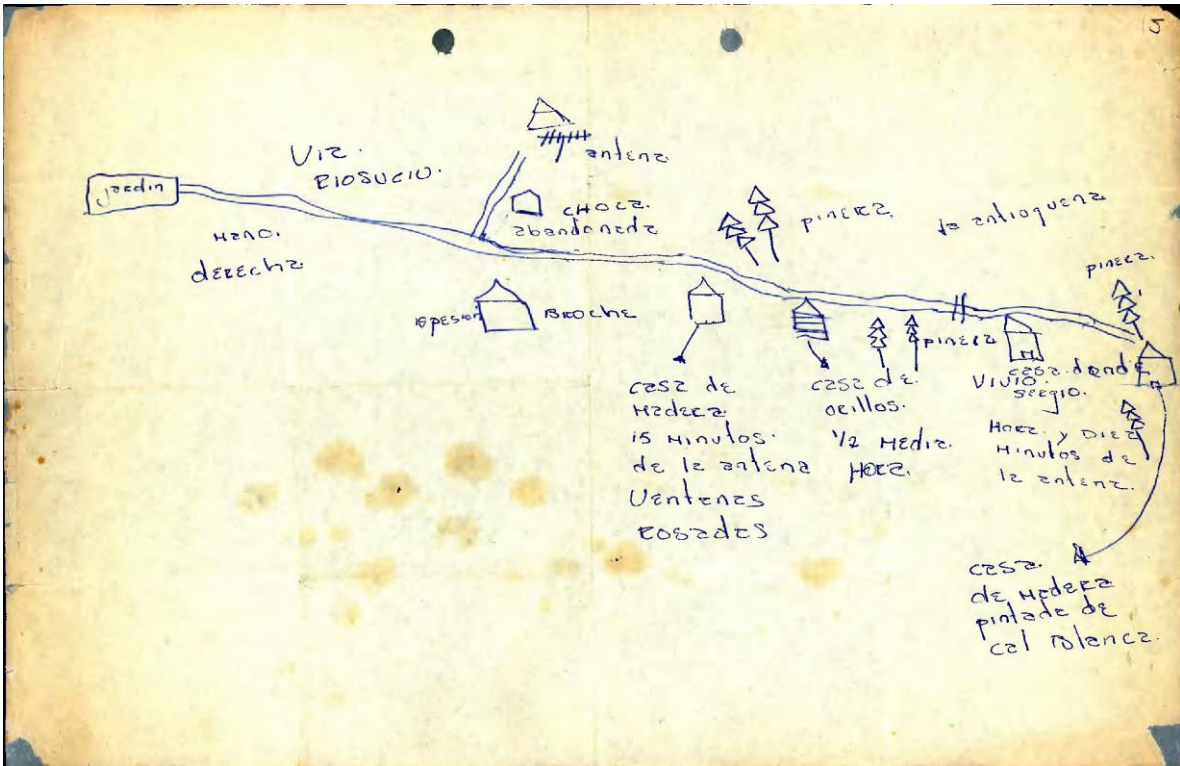 5
antena
Via.
RIOSUCIO.
jardin
CHOCa
abandonada
Mano.
derecha
pinera
la antioquena
pinera.
BROCHE
pinera
casa de
Madera
15 Minutos.
de la antena
Ventanas
rosadas
casa de.
orillos.
1/2 Media.
HORA.
casa donde
VIVIO.
sergio.
Hora. y Diez
Minutos de
la antena.
casa.
de Madera
pintada de
cal Blanca.